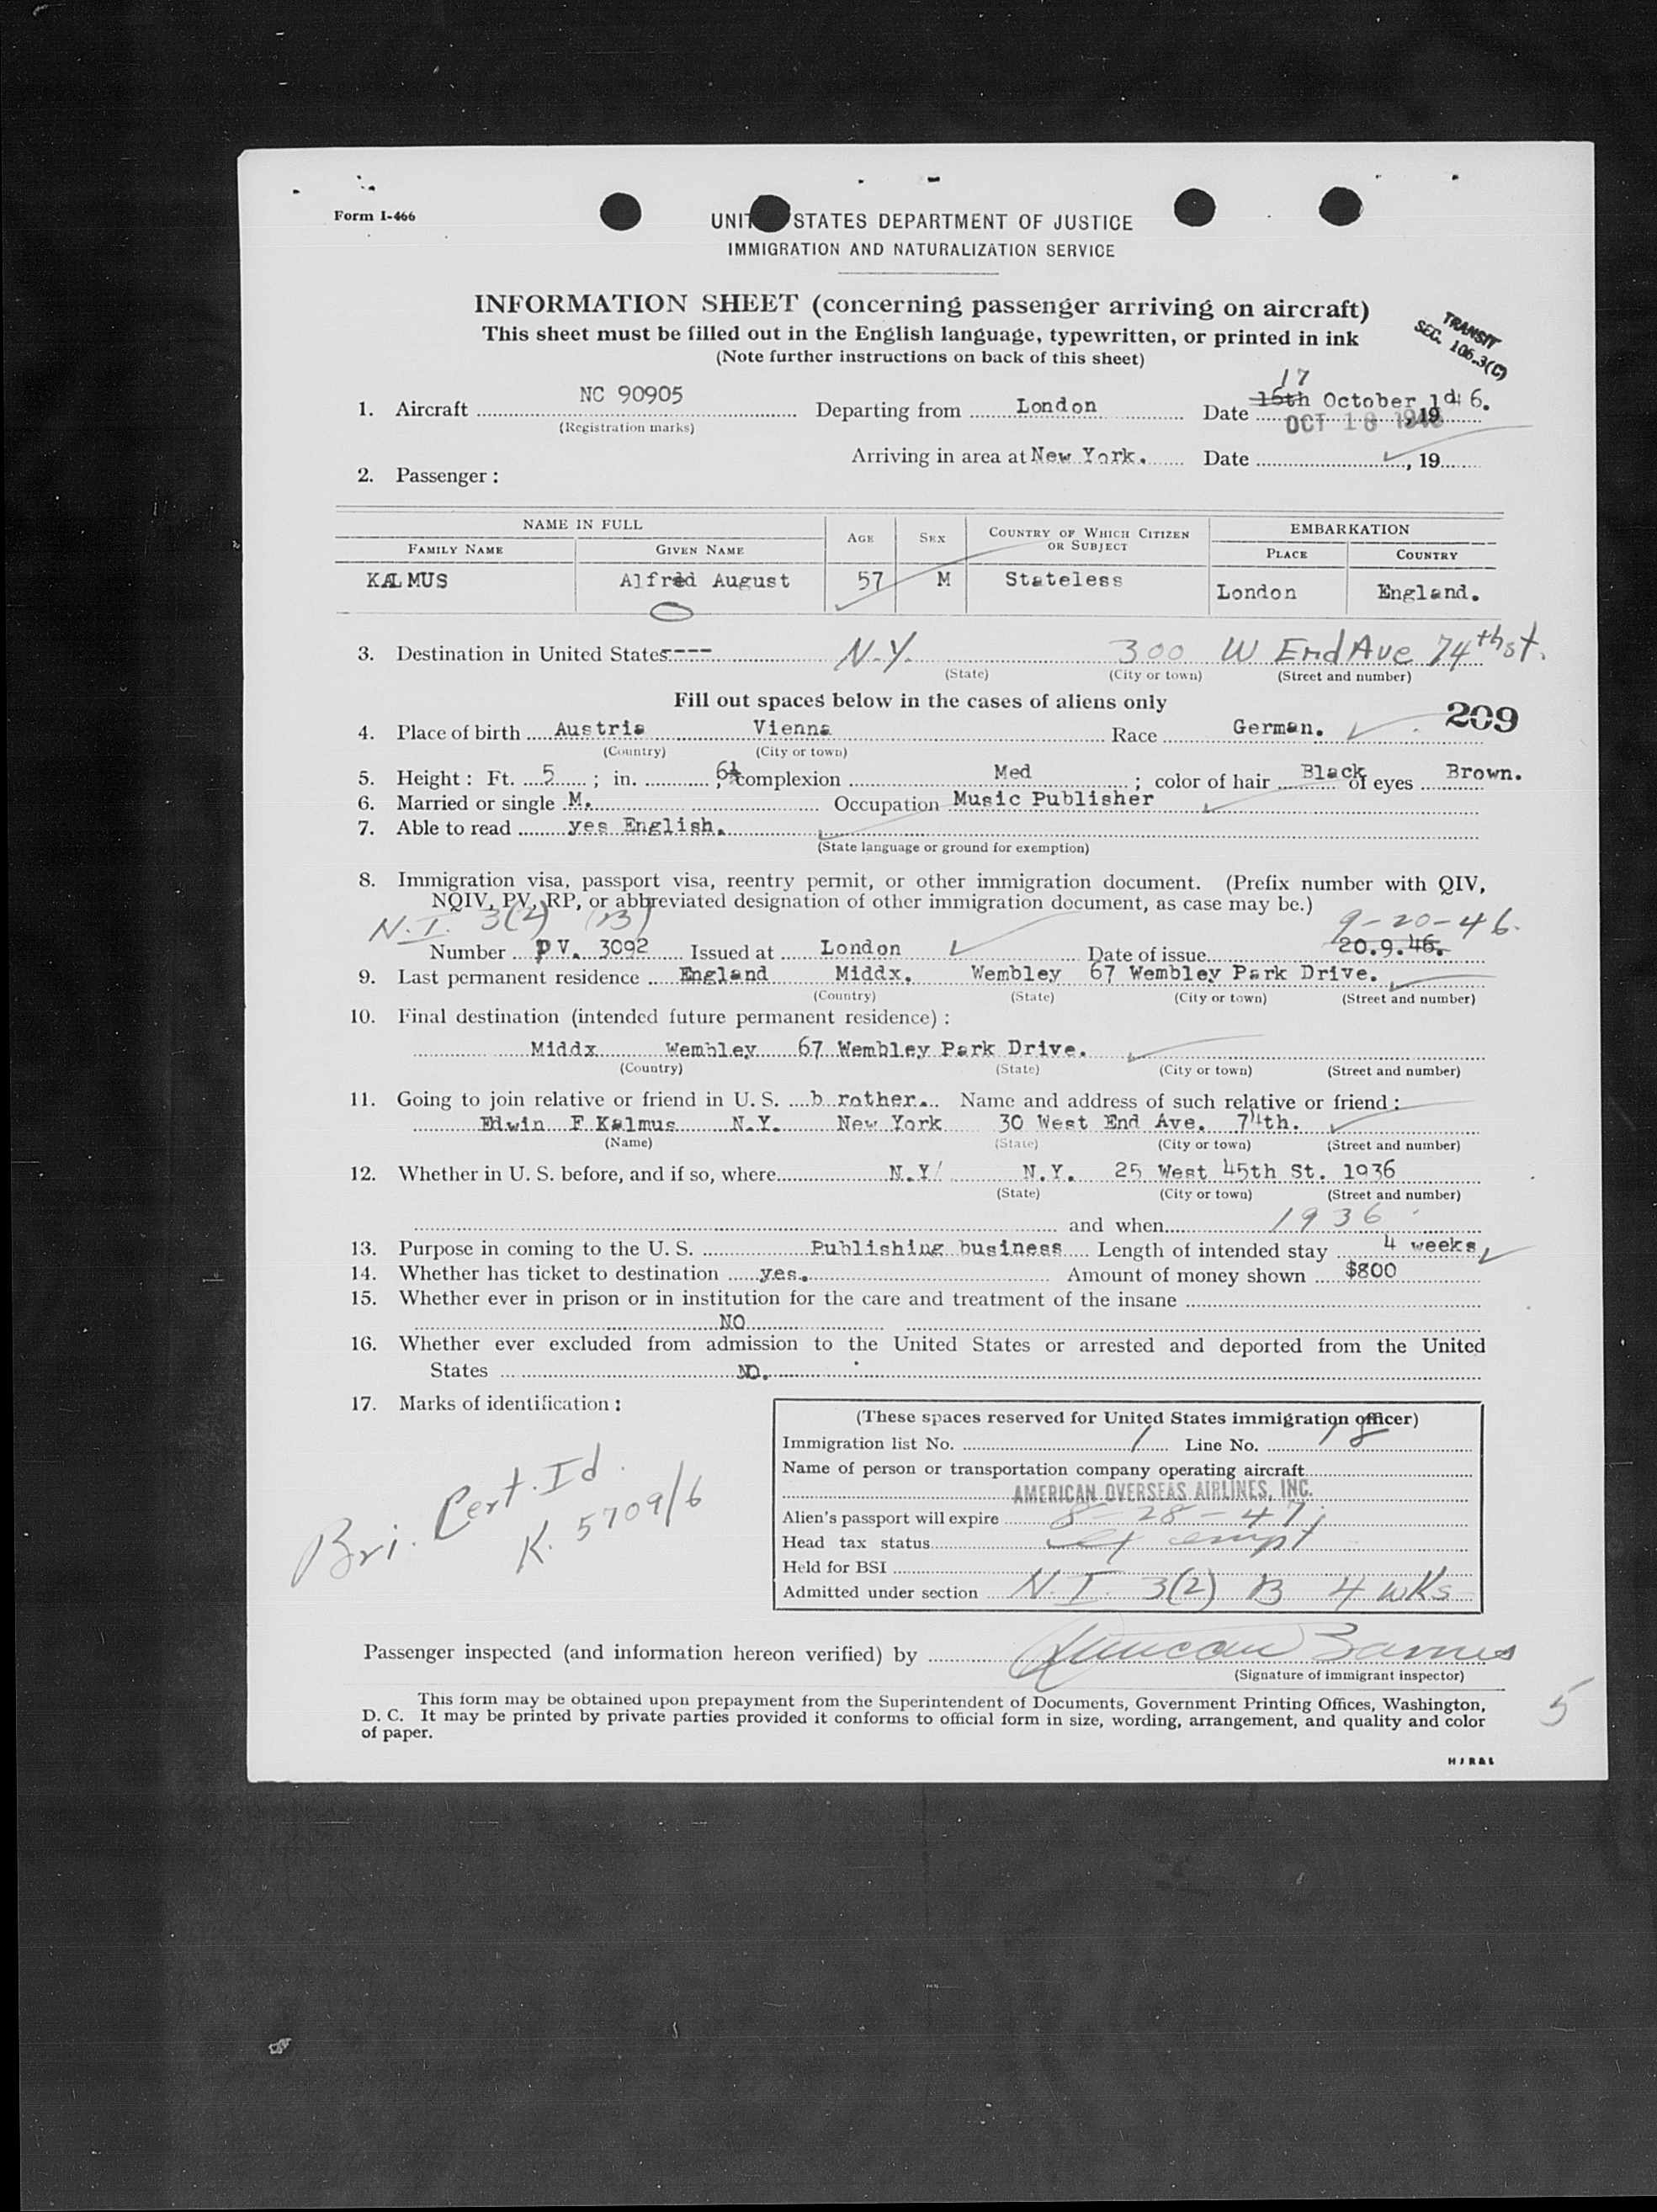 Form I-466
UNIT STATES DEPARTMENT OF JUSTICE
IMMIGRATION AND NATURALIZATION SERVICE
INFORMATION SHEET (concerning passenger arriving on aircraft)
This sheet must be filled out in the English language, typewritten, or printed in ink
(Note further instructions on back of this sheet)
TRANSIT
SEC. 106.3(C)
17
1. Aircraft NC 90905 Departing from London Date 15th October 1946.
(Registration marks) OCT 18 1946 , 19
Arriving in area at New York. Date , 19
2. Passenger :
NAME IN FULL AGE SEX COUNTRY OF WHICH CITIZEN OR SUBJECT EMBARKATION
FAMILY NAME GIVEN NAME PLACE COUNTRY
KALMUS Alfred August 57 M Stateless London England.
3. Destination in United States---- N.Y. 300 W End Ave 74th st.
(State) (City or town) (Street and number)
Fill out spaces below in the cases of aliens only
209
4. Place of birth Austria Vienna Race German.
(Country) (City or town)
5. Height : Ft. 5 ; in. 6½ , complexion Med ; color of hair Black of eyes Brown.
6. Married or single M. Occupation Music Publisher
7. Able to read yes English.
(State language or ground for exemption)
8. Immigration visa, passport visa, reentry permit, or other immigration document. (Prefix number with QIV,
NQIV, PV, RP, or abbreviated designation of other immigration document, as case may be.)
N.I. 3(2) (B) 9-20-46.
Number PV. 3092 Issued at London Date of issue 20.9.46.
9. Last permanent residence England Middx. Wembley 67 Wembley Park Drive.
(Country) (State) (City or town) (Street and number)
10. Final destination (intended future permanent residence) :
Middx Wembley 67 Wembley Park Drive.
(Country) (State) (City or town) (Street and number)
11. Going to join relative or friend in U. S. b rother. Name and address of such relative or friend :
Edwin F Kalmus N.Y. New York 30 West End Ave. 74th.
(Name) (State) (City or town) (Street and number)
12. Whether in U. S. before, and if so, where N.Y. N.Y. 25 West 45th St. 1936
(State) (City or town) (Street and number)
and when 1936
13. Purpose in coming to the U. S. Publishing business Length of intended stay 4 weeks
14. Whether has ticket to destination yes. Amount of money shown $800
15. Whether ever in prison or in institution for the care and treatment of the insane
NO
16. Whether ever excluded from admission to the United States or arrested and deported from the United
States NO.
17. Marks of identification :
Bri. Cert. Id.
K. 5709/6
(These spaces reserved for United States immigration officer)
Immigration list No. 1 Line No. 18
Name of person or transportation company operating aircraft
AMERICAN OVERSEAS AIRLINES, INC.
Alien's passport will expire 8-28-47
Head tax status exempt
Held for BSI
Admitted under section N.I. 3(2) B 4 wks
Passenger inspected (and information hereon verified) by Duncan Barnes
(Signature of immigrant inspector)
This form may be obtained upon prepayment from the Superintendent of Documents, Government Printing Offices, Washington,
D. C. It may be printed by private parties provided it conforms to official form in size, wording, arrangement, and quality and color
of paper.
5
HJR&L